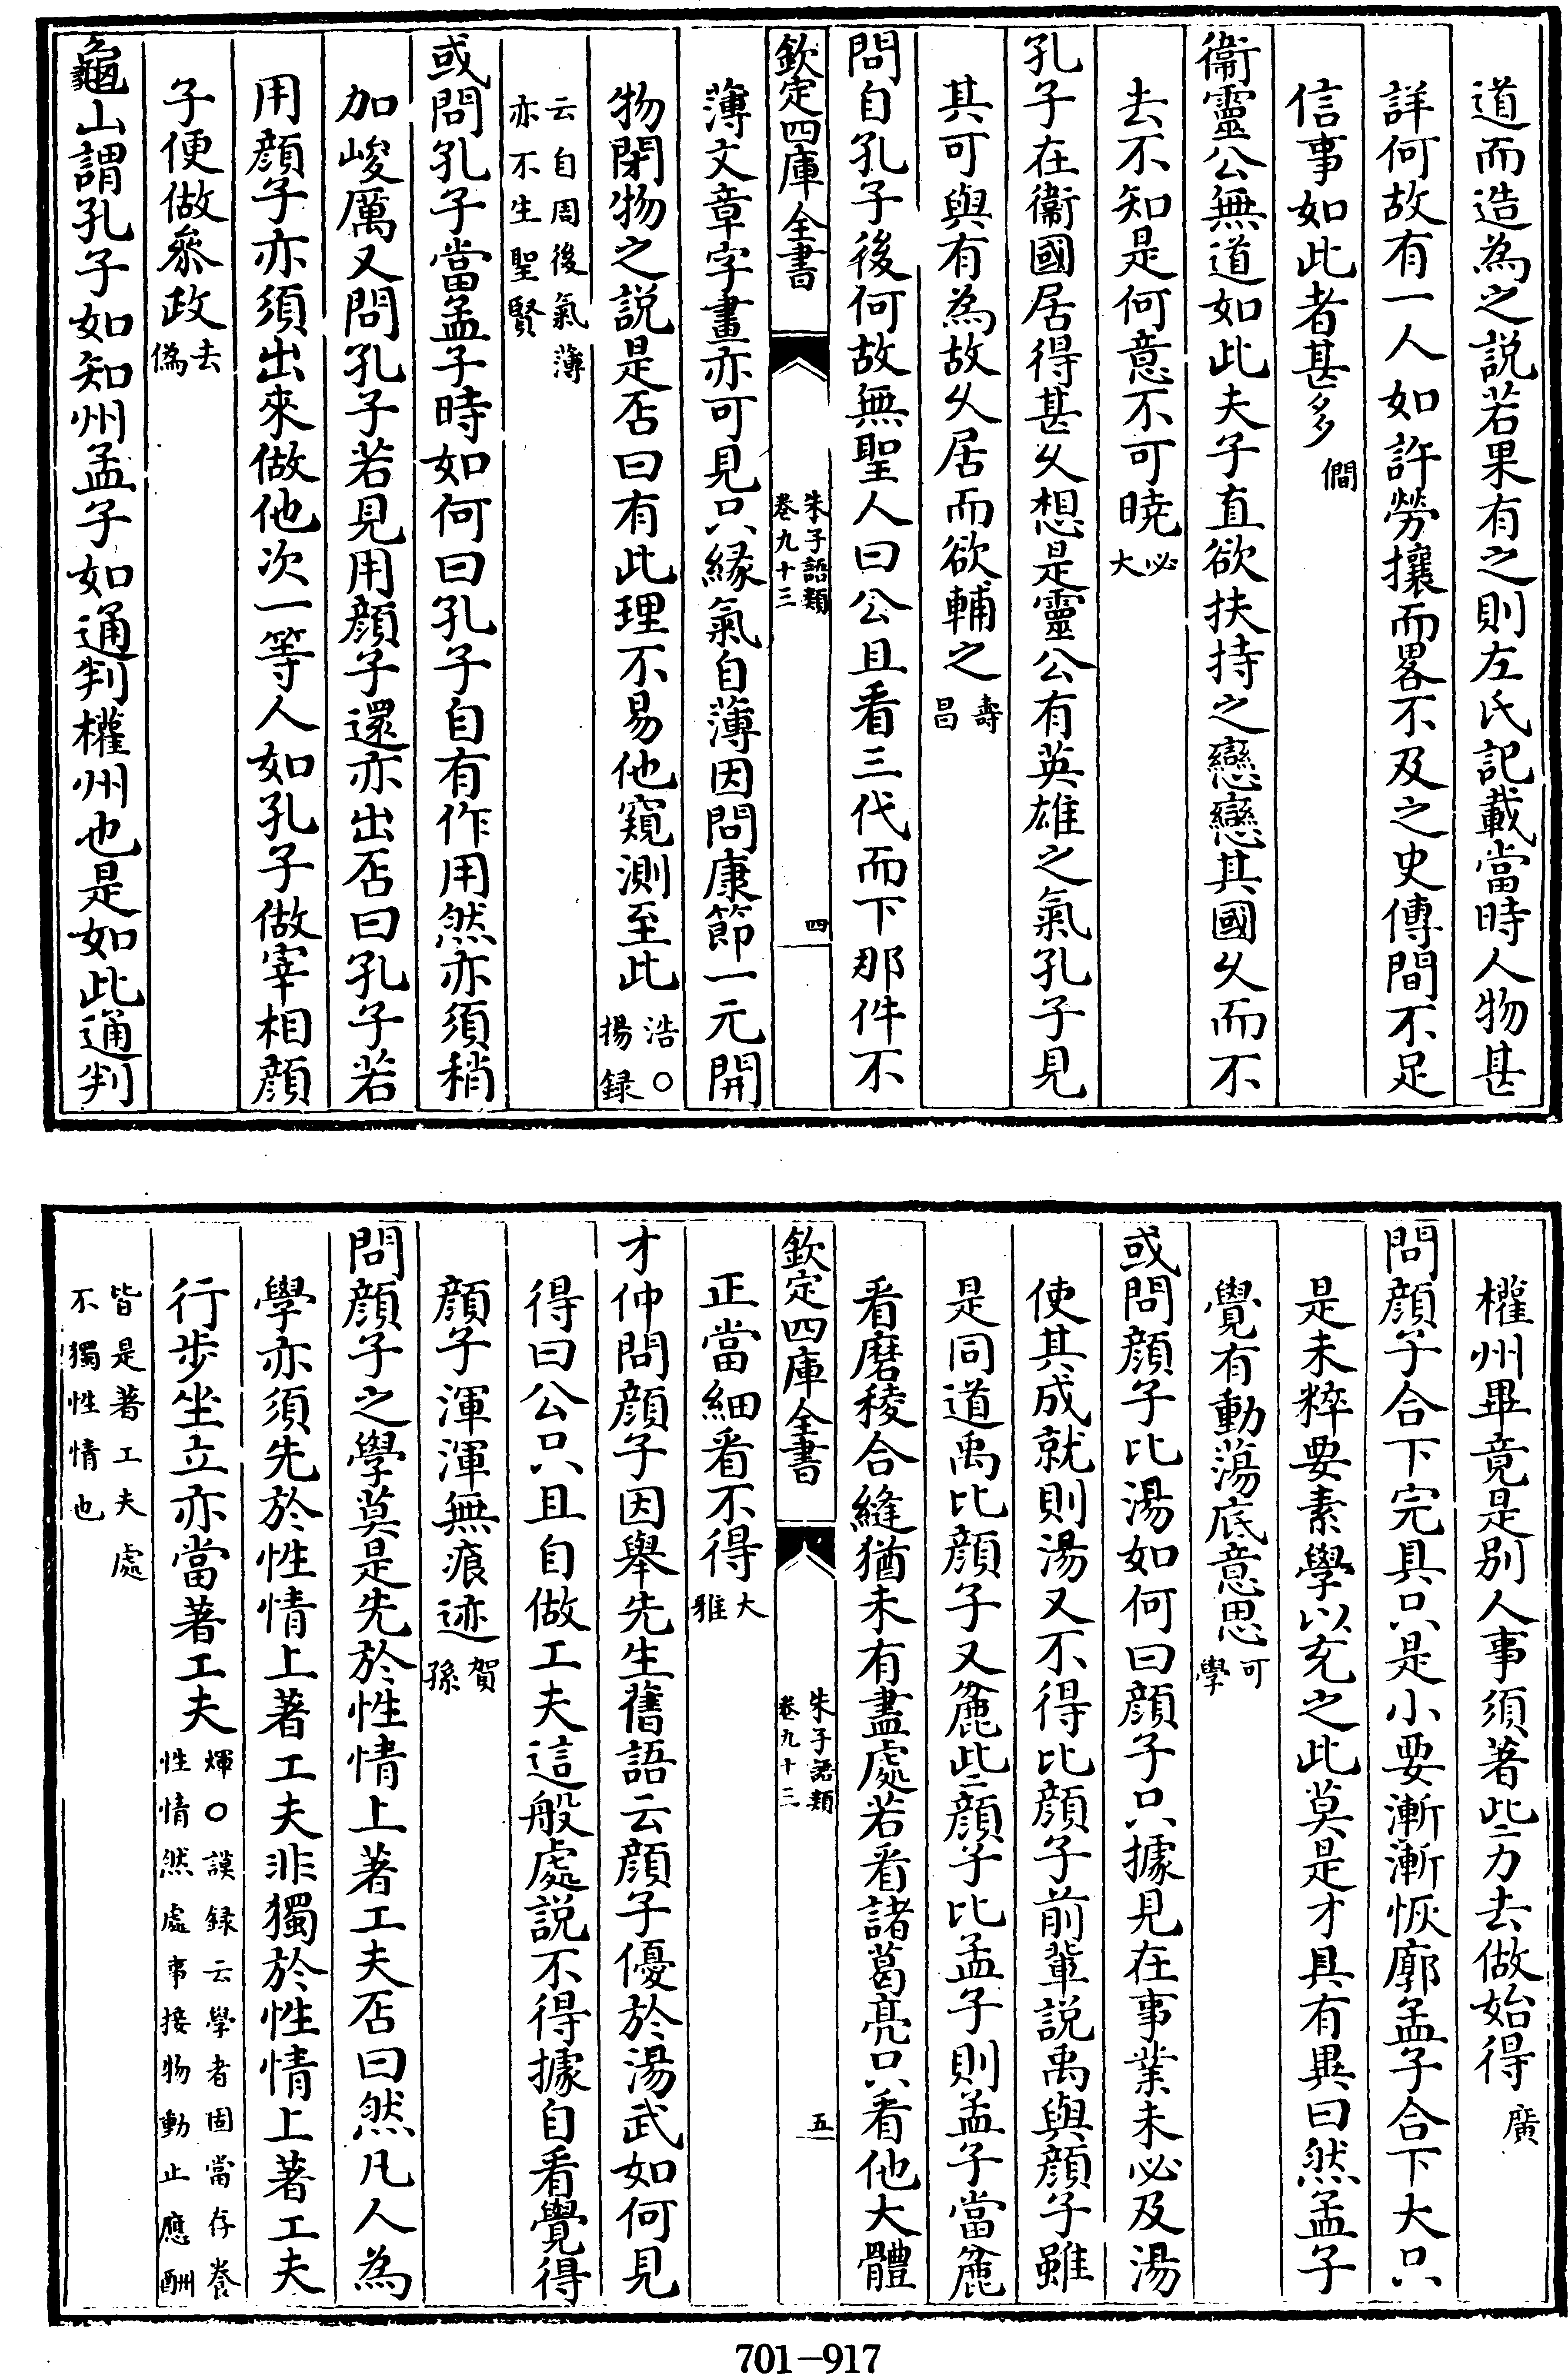 道而造為之説若果有之則左氏記載當時人物甚
詳何故有一人如許勞攘而畧不及之史傳間不足
信事如此者甚多僩
衞靈公無道如此夫子直欲扶持之戀戀其國久而不
去不知是何意不可曉必大
孔子在衞國居得甚久想是靈公有英雄之氣孔子見
其可與有為故久居而欲輔之壽昌
問自孔子後何故無聖人曰公且看三代而下那件不
欽定四庫全書
朱子語類
卷九十三
四
薄文章字畫亦可見只緣氣自薄因問康節一元開
物閉物之説是否曰有此理不易他窺測至此浩〇揚録
云自周後氣薄亦不生聖賢
或問孔子當孟子時如何曰孔子自有作用然亦須稍
加峻厲又問孔子若見用顔子還亦出否曰孔子若
用顔子亦須出來做他次一等人如孔子做宰相顔
子便做叅政去僞
龜山謂孔子如知州孟子如通判權州也是如此通判
權州畢竟是别人事須著些力去做始得廣
問顔子合下完具只是小要漸漸恢廓孟子合下大只
是未粹要素學以充之此莫是才具有異曰然孟子
覺有動蕩底意思可學
或問顔子比湯如何曰顔子只據見在事業未必及湯
使其成就則湯又不得比顔子前輩説禹與顔子雖
是同道禹比顔子又麄些顔子比孟子則孟子當麄
看磨稜合縫猶未有盡處若看諸葛亮只看他大體
欽定四庫全書
朱子語類
卷九十三
五
正當細看不得大雅
才仲問顔子因舉先生舊語云顔子優於湯武如何見
得曰公只且自做工夫這般處説不得據自看覺得
顔子渾渾無痕迹賀孫
問顔子之學莫是先於性情上著工夫否曰然凡人為
學亦須先於性情上著工夫非獨於性情上著工夫
行步坐立亦當著工夫煇〇謨録云學者固當存養性情然處事接物動止應酬
皆是著工夫處不獨性情也
701-917